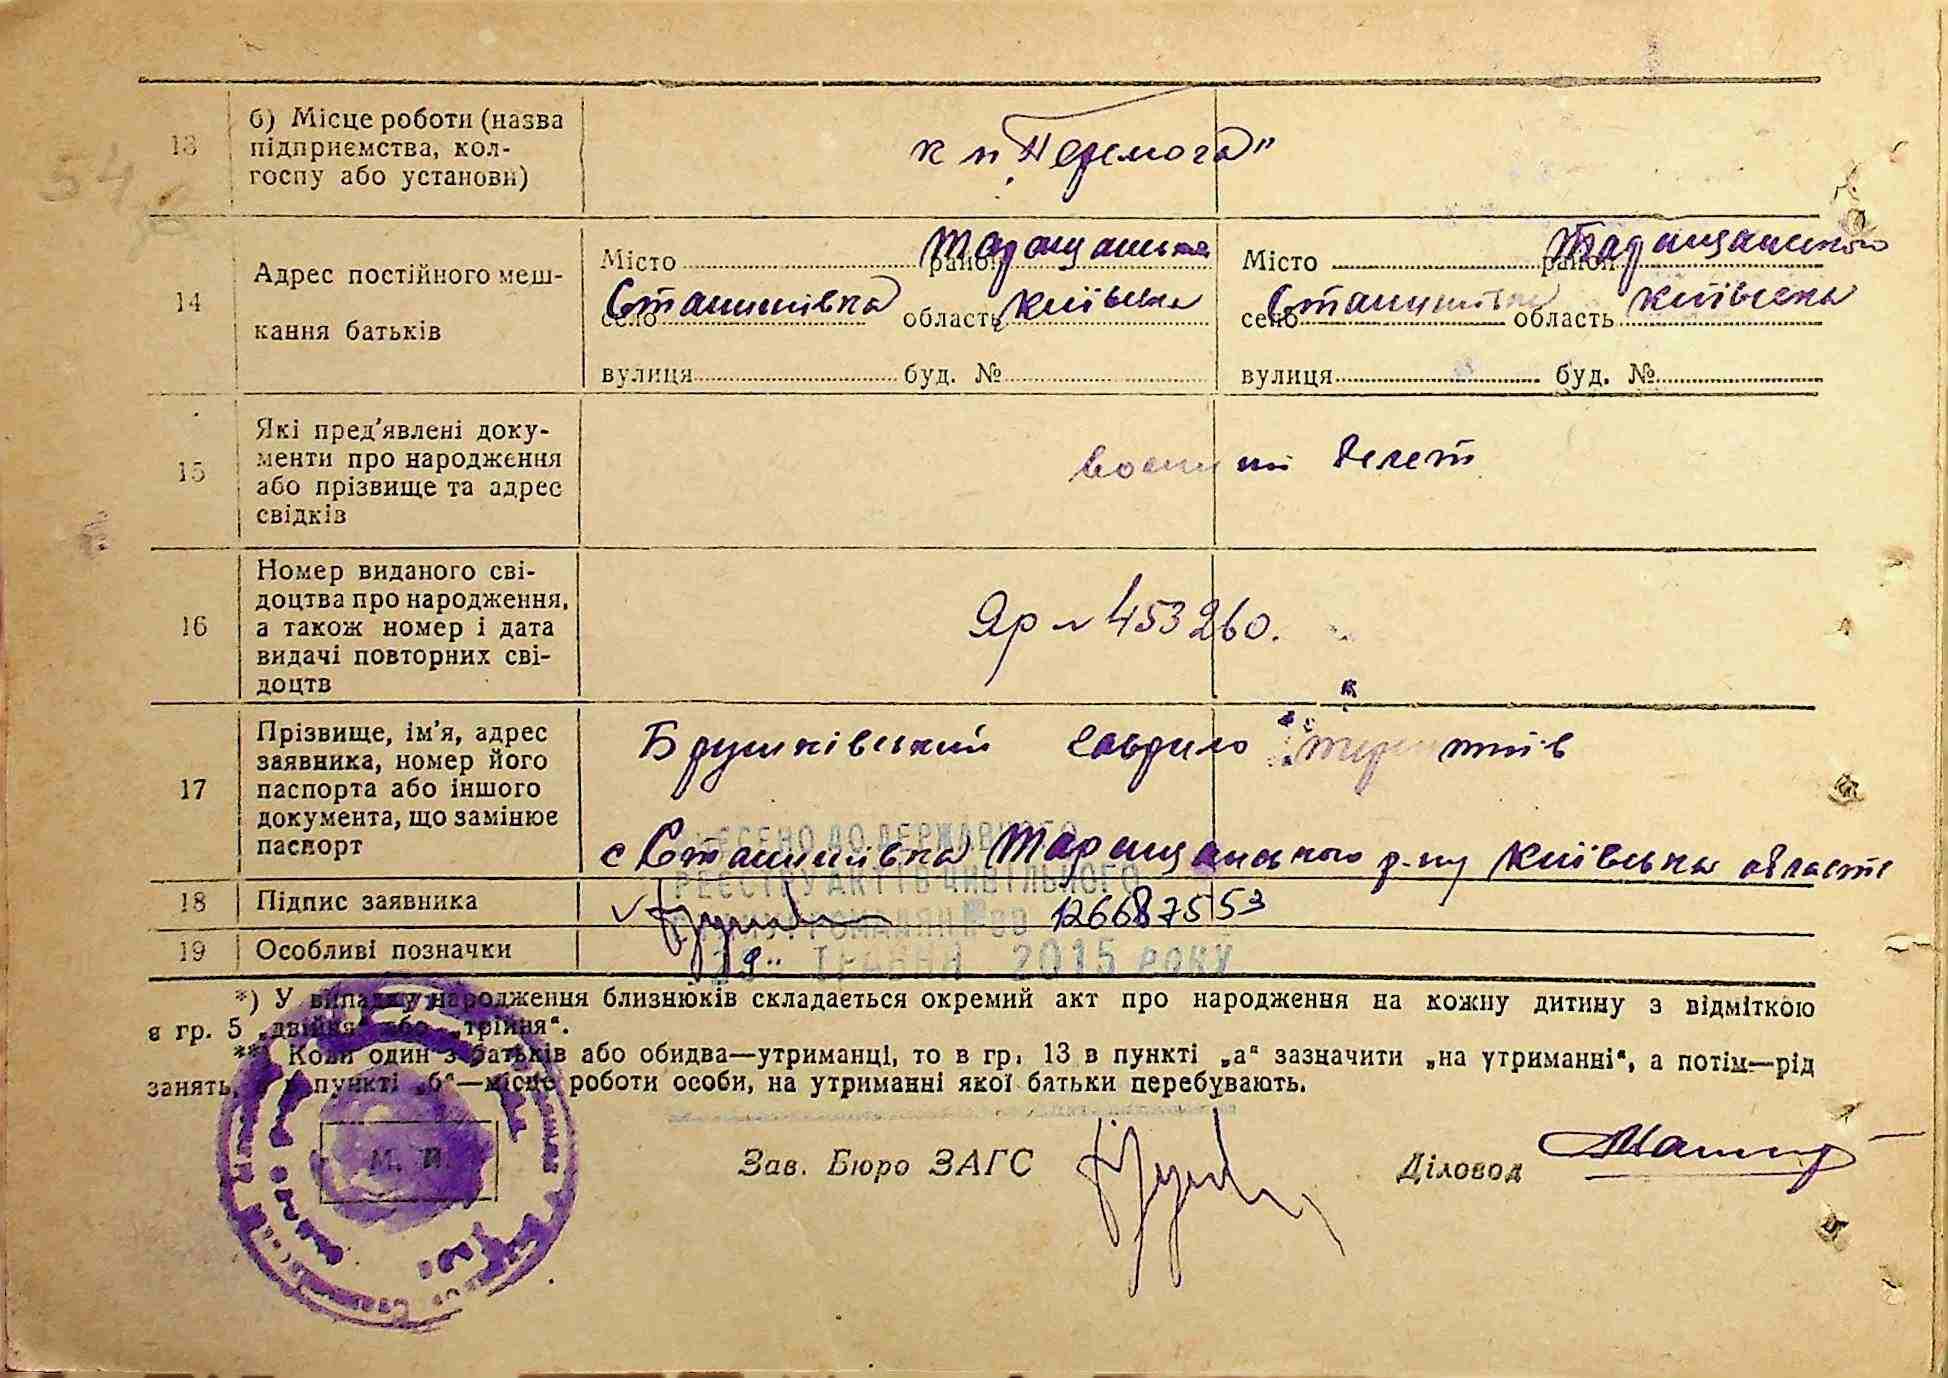 13
б) Місце роботи (назва
підприємства, кол-
госпу або установи)
к п "Перемога"
14
Адрес постійного меш-
кання батьків
Місто район Таращанська
село Станишівка область Київська
вулиця буд. №
Місто район Таращанського
село Станишівка область Київська
вулиця буд. №
15
Які пред'явлені доку-
менти про народження
або прізвище та адрес
свідків
воєнний белет
16
Номер виданого сві-
доцтва про народження,
а також номер і дата
видачі повторних сві-
доцтв
Яр № 453260.
17
Прізвище, ім'я, адрес
заявника, номер його
паспорта або іншого
документа, що замінює
паспорт
Брушківський Гаврило
с Станишівка Таращанського р-ну Київська область
ВНЕСЕНО ДО ДЕРЖАВНОГО
РЕЄСТРУ АКТІВ ЦИВІЛЬНОГО
СТАНУ ГРОМАДЯН № 00 126687553
ТРАВНЯ 2015 РОКУ
18
Підпис заявника
19
Особливі позначки
*) У випадку народження близнюків складається окремий акт про народження на кожну дитину з відміткою
в гр. 5 „двійня" або „трійня".
**) Коли один з батьків або обидва—утриманці, то в гр. 13 в пункті „а" зазначити „на утриманні", а потім—рід
занять, а в пункті „б"—місце роботи особи, на утриманні якої батьки перебувають.
М. П.
Зав. Бюро ЗАГС
Діловод